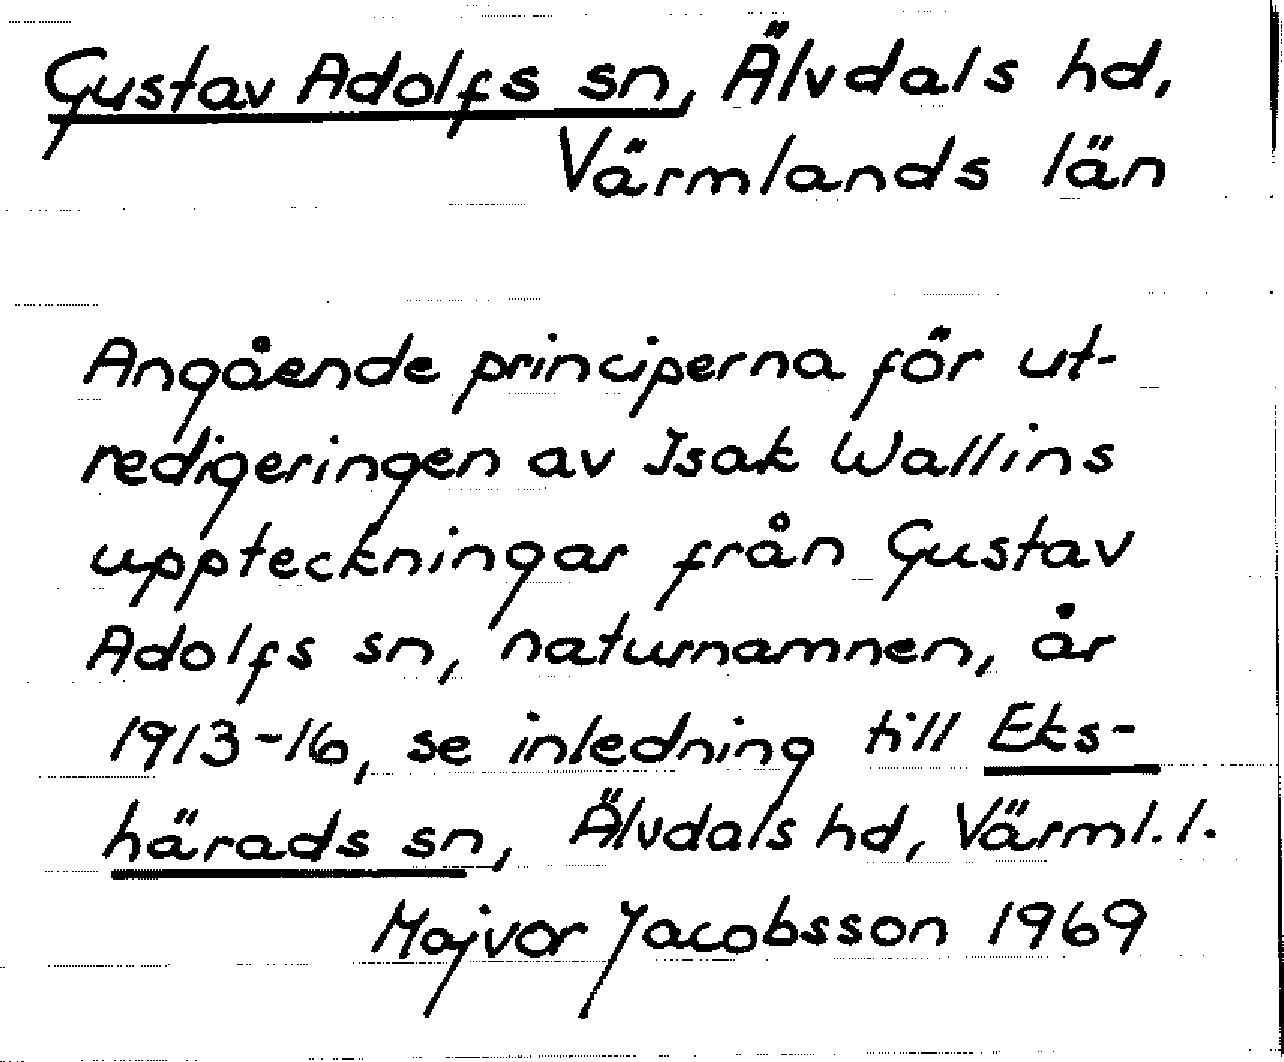 Gustav Adolfs sn, Älvdals hd,
Värmlands län
Angående principerna för ut-
redigeringen av Isak Wallins
uppteckningar från Gustav
Adolfs sn, naturnamnen, år
1913-16, se inledning till Eks-
härads sn, Älvdals hd, Värml. l.
Majvor Jacobsson 1969